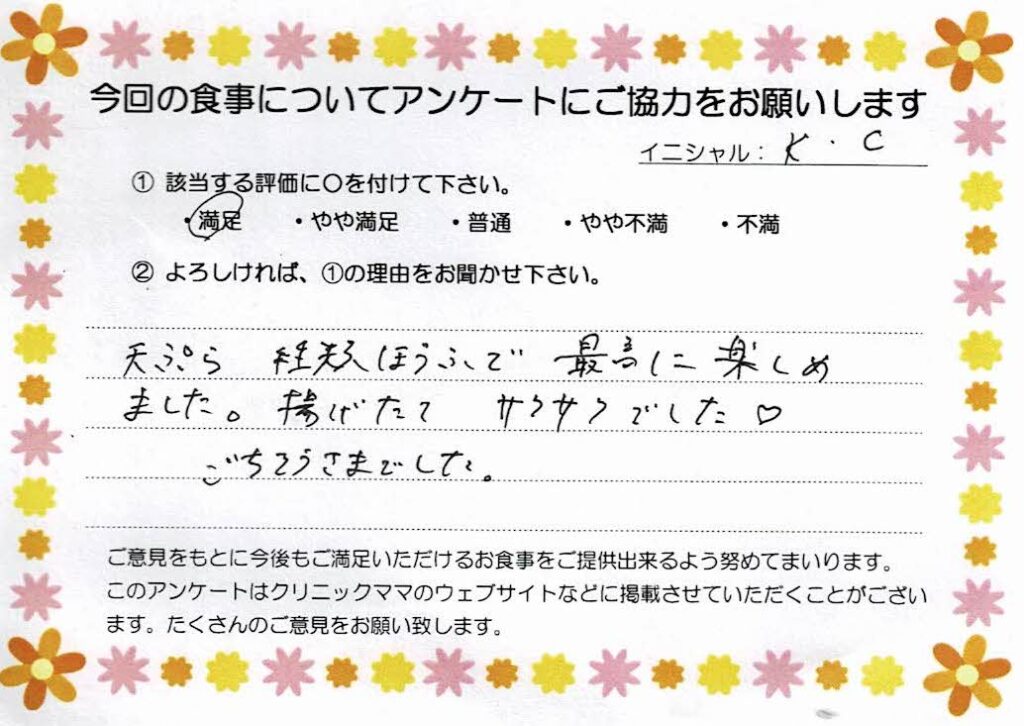 今回の食事についてアンケートにご協力をお願いします
イニシャル： K・C
① 該当する評価に〇を付けて下さい。
・満足 ・やや満足 ・普通 ・やや不満 ・不満
② よろしければ、①の理由をお聞かせ下さい。
天ぷら 種類ほうふで 最高に楽しめ
ました。揚げたて サクサクでした♡
ごちそうさまでした。
ご意見をもとに今後もご満足いただけるお食事をご提供出来るよう努めてまいります。
このアンケートはクリニックママのウェブサイトなどに掲載させていただくことがござい
ます。たくさんのご意見をお願い致します。